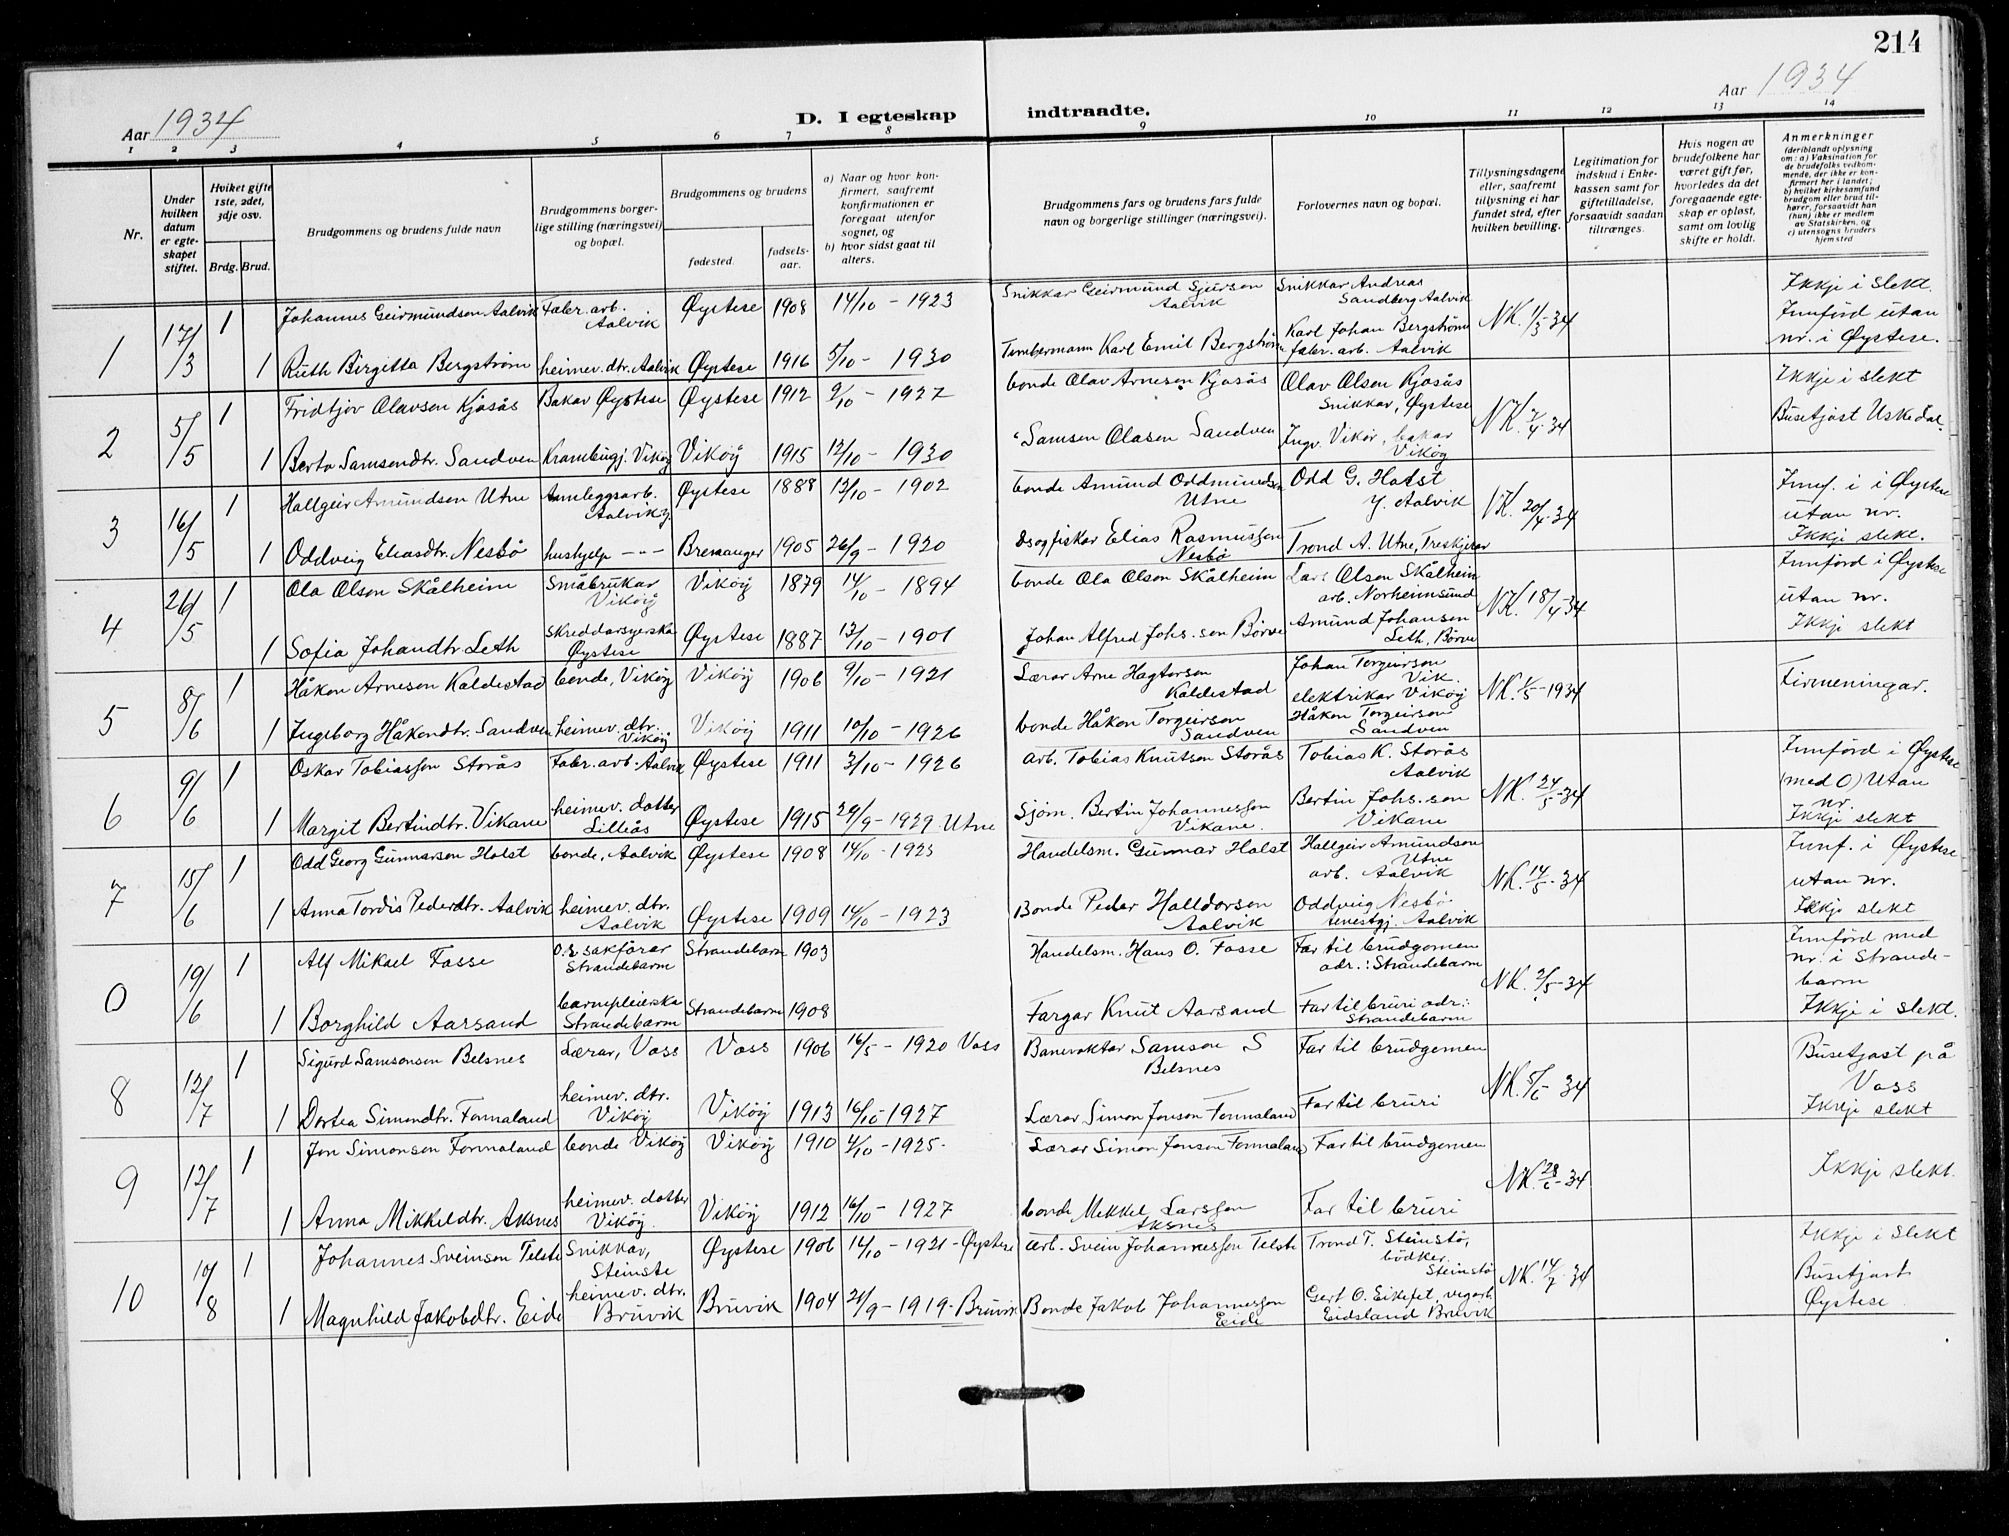 214
Aar 1934
D. I egteskap indtraadte.
Aar 1934
1 2 3 4 5 6 7 8 9 10 11 12 13 14
Nr.
Under hvilken datum er egteskapet stiftet.
Hviket gifte 1ste, 2det, 3dje osv.
Brdg. Brud.
Brudgommens og brudens fulde navn
Brudgommens borgerlige stilling (næringsvei) og bopæl.
Brudgommens og brudens
fødested. fødselsaar.
a) Naar og hvor konfirmert, saafremt konfirmationen er foregaat utenfor sognet, og
b) hvor sidst gaat til alters.
Brudgommens fars og brudens fars fulde navn og borgerlige stillinger (næringsvei).
Forlovernes navn og bopæl.
Tillysningsdagene eller, saafremt tillysning ei har fundet sted, efter hvilken bevilling.
Legitimation for indskud i Enkekassen samt for giftetilladelse, forsaavidt saadan tiltrænges.
Hvis nogen av brudefolkene har været gift før, hvorledes da det foregaaende egteskap er opløst, samt om lovlig skifte er holdt.
Anmerkninger (deriblandt oplysning om: a) Vaksination for de brudefolks vedkommende, der ikke er konfirmert her i landet; b) hvilket kirkesamfund brudgom eller brud tilhører, forsaavidt han (hun) ikke er medlem av Statskirken, og c) utensogns bruders hjemsted
1 17/3 1 Johannes Geirmundson Aalvik Fabr. arb. Aalvik Øystese 1908 14/10 - 1923 Snikkar Geirmund Sjurson Aalvik Snikkar Andreas Sandberg Aalvik NK. 1/3-34 Ikkje i slekt. Innförd utan nr. i Øystese.
1 Ruth Birgitta Bergström heimev. dtr. Aalvik Øystese 1916 5/10 - 1930 Tømbermann Karl Emil Bergström Karl Johan Bergström fabr. arb. Aalvik
2 5/5 1 Fridtjov Olavsen Kjosås Bakar Øystese Øystese 1912 2/10 - 1927 bonde Olav Arneson Kjosås Olav Olson Kjosås Snikkar, Øystese NK. 7/4-34 Ikkje i slekt Busetjast Uskedal.
1 Berta Samsondtr. Sandven Krambugj. Vikøy Vikøy 1915 12/10 - 1930 " Samson Olason Sandven Ingv. Vikør, bakar Vikøy
3 16/5 1 Hallgeir Amundsen Utne Annleggsarb. Aalvik y. Øystese 1888 12/10 - 1902 bonde Amund Oddmundson Utne Odd G. Holst y. Aalvik NK. 20/4-34 Innf. i i Øystese utan nr. Ikkje slekt.
1 Oddveig Eliasdtr. Nesbö hushjelp - " - Bremanger 1905 26/9 - 1920 Dsogfiskar Elias Rasmussen Nesbö Trond A. Utne, Treskjerar
4 26/5 1 Ola Olson Skålheim Småbrukar Vikøy Vikøy 1879 14/10 - 1894 bonde Ola Olson Skålheim Lars Olson Skålheim arb. Norheimsund NK. 18/4-34 Innförd i Øystese utan nr. Ikkje slekt
1 Sofia Johandtr. Leth Skreddarsyerska Øystese Øystese 1887 13/10 - 1901 Johan Alfred Johs.son Börve Amund Johansen Leth, Börve
5 8/6 1 Håkon Arneson Kaldestad bonde, Vikøy Vikøy 1906 9/10 - 1921 Lærar Arne Hagtorson Kaldestad Johan Torgeirson Vik. elektrikar Vikøy NK. 1/5-1934 Tirmeningar.
1 Ingeborg Håkondtr. Sandven heimev. dtr. Vikøy Vikøy 1911 10/10 - 1926 bonde Håkon Torgeirson Sandven Håkon Torgeirson Sandven
6 9/6 1 Oskar Tobiasson Storås Fabr. arb. Aalvik Øystese 1911 3/10 - 1926 arb. Tobias Knutson Storås Tobias K. Storås Aalvik NK. 24/5-34 Innförd i Øystese (med O) Utan nr. Ikkje slekt
1 Margit Bertindtr. Vikane heimev. dotter Lilleås Øystese 1915 29/9 - 1929 Utne Sjöm. Bertin Johannesson Vikane. Bertin Johs.son Vikane
7 15/6 1 Odd Georg Gunnarson Holst bonde, Aalvik Øystese 1908 14/10 - 1923 Handelsm. Gunnar Holst Hallgeir Amundson Utne arb. Aalvik NK. 14/5-34 Innf. i Øystese utan nr. Ikkje slekt
1 Anna Tordis Pederdtr. Aalvik heimev. dtr. Aalvik Øystese 1909 14/10 - 1923 Bonde Peder Halldorson Aalvik Oddveig Nesbö tenestgj. Aalvik
0 19/6 1 Alf Mikael Fosse O.r. sakförar Strandebarm Strandebarm 1903 Handelsm. Hans O. Fosse Far til brudgomen adr.: Strandebarm NK. 2/5-34 Innförd med nr. i Strandebarm Ikkje i slekt.
1 Borghild Aarsand barnepleierska Strandebarm Strandebarm 1908 Fargar Knut Aarsand Far til bruri adr.: Strandebarm
8 12/7 1 Sigurd Samsonsen Belsnes Lærar, Voss Voss 1906 16/5 - 1920 Voss Banevaktar Samson S Belsnes Far til brudgomen NK. 5/6 34 Busetjast på Voss Ikkje slekt
1 Dortea Simondtr. Tormaland heimev. dtr. Vikøy Vikøy 1913 16/10 1927 Lærar Simon Jonson Tormaland Far til bruri
9 12/7 1 Jon Simonson Tormaland bonde Vikøy Vikøy 1910 4/10 - 1925. Lærar Simon Jonson Tormaland Far til brudgomen NK. 28/6-34 Ikkje slekt.
1 Anna Mikkeldtr. Aksnes heimev. dotter Vikøy. Vikøy 1912 16/10 - 1927 bonde Mikkel Larsson Aksnes Far til bruri
10 10/8 1 Johannes Sveinson Telste Snikkar, Steinstø Øystese 1906 16/10 - 1921 - Øystese arb. Svein Johannesson Telste Trond T. Steinstø, bödker. Steinstø NK. 14/7-34 Ikkje i slekt Busetjast Øystese
1 Magnhild Jakobdtr. Eide heimev. dtr. Bruvik Bruvik 1904 21/9 - 1919 - Bruvik Bonde Jakob Johannesson Eide Gert O. Eikefet, vegarb. Eidsland Bruvik